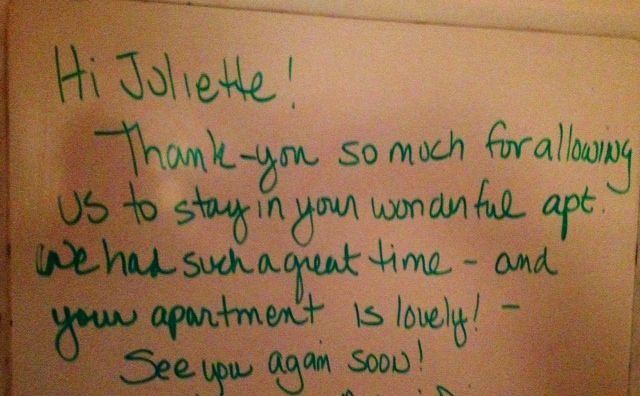 Hi Juliette!
Thank-you so much for allowing
us to stay in your wonderful apt.
We had such a great time - and
your apartment is lovely! -
See you again soon!